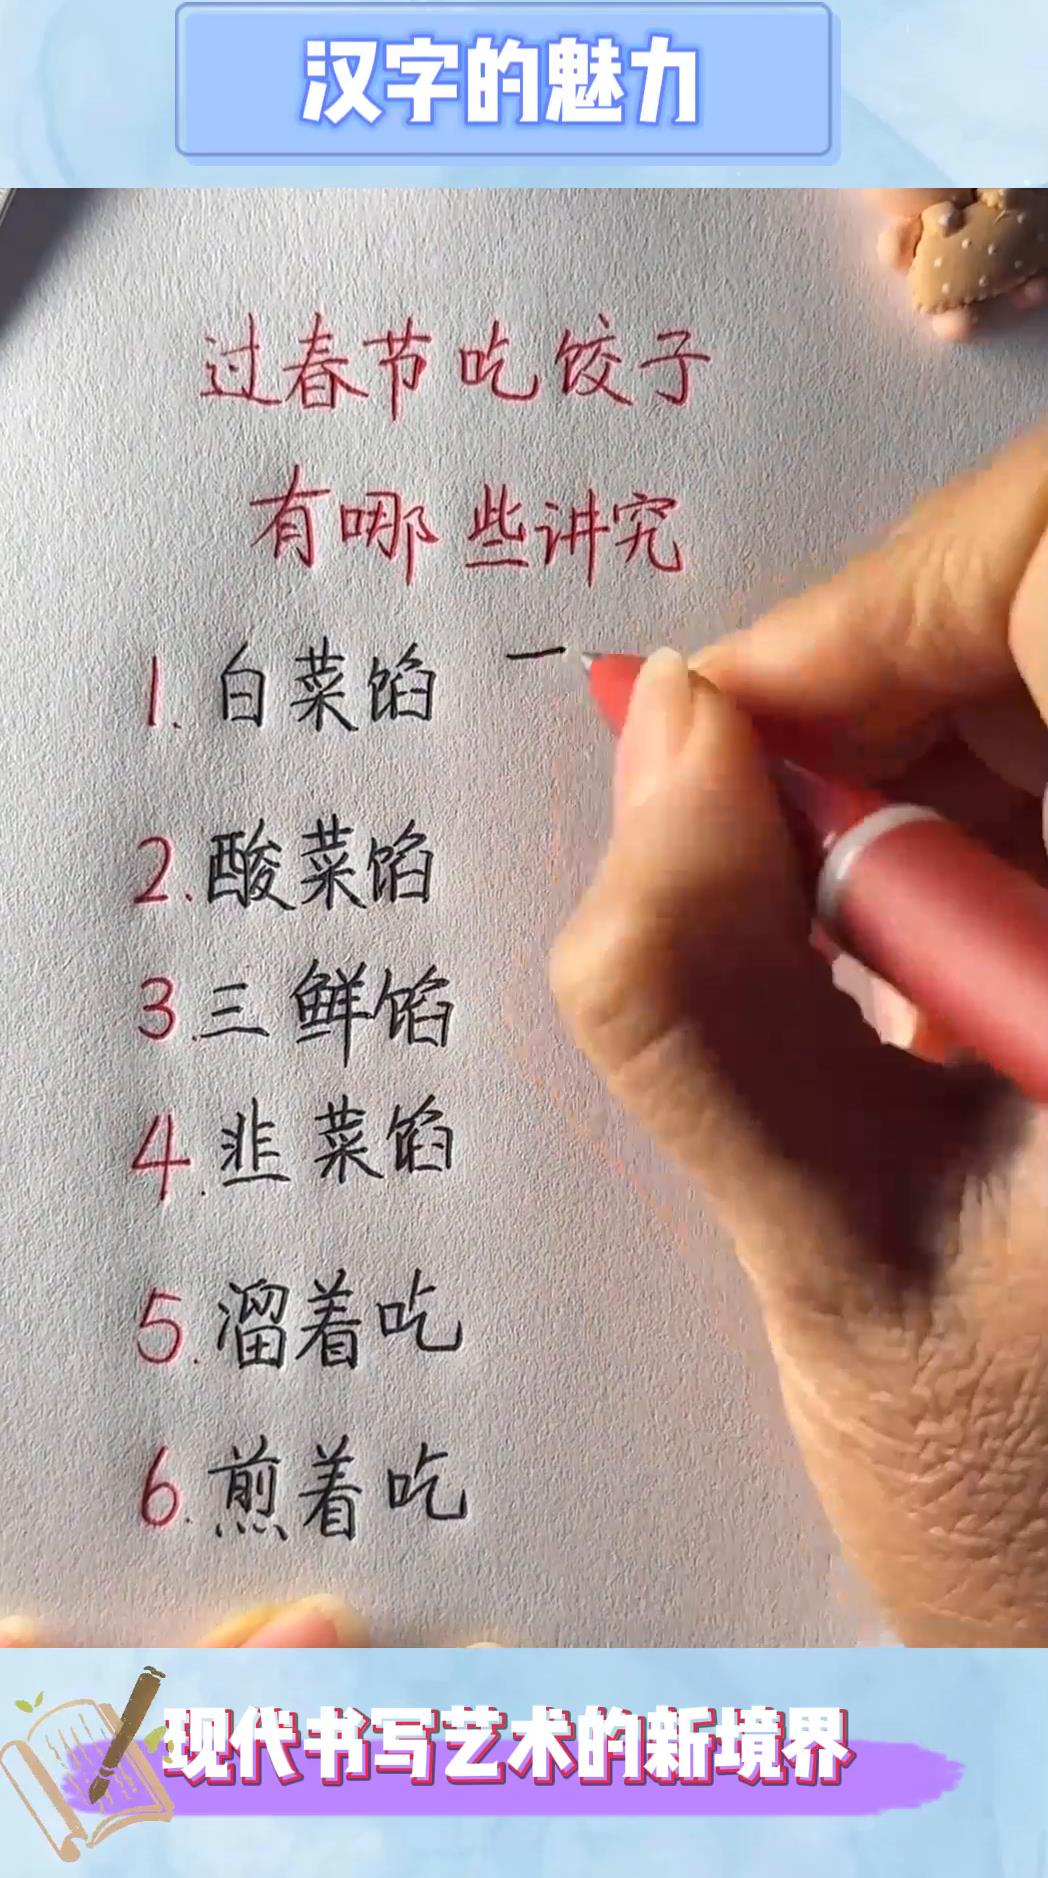 汉字的魅力
过春节吃饺子
有哪些讲究
1. 白菜馅 一
2. 酸菜馅
3. 三鲜馅
4. 韭菜馅
5. 溜着吃
6. 煎着吃
现代书写艺术的新境界